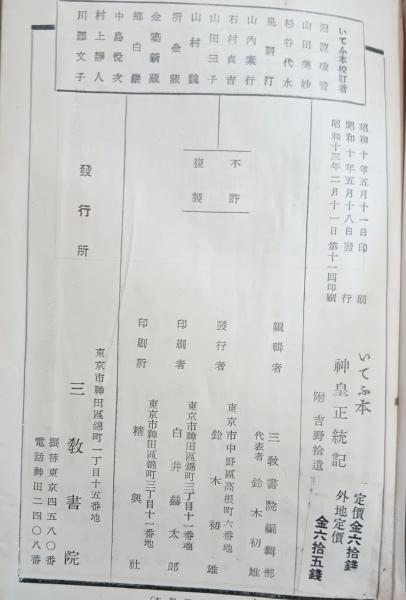 昭和十年五月十一日印刷
昭和十年五月十八日發行
昭和十三年二月十一日第十一回印刷
いてふ本
神皇正統記
附吉野拾遺
定價金六拾錢
外地定價
金六拾五錢
不許
複製
編輯者
三教書院編輯部
代表者 鈴木初雄
東京市中野區高根町六番地
發行者 鈴木初雄
東京市神田區錦町三丁目十一番地
印刷者 白井赫太郎
東京市神田區錦町三丁目十一番地
印刷所 精興社
發行所
東京市神田區錦町一丁目十五番地
三教書院
振替東京四五八〇番
電話神田二四〇八番
いてふ本校訂者
沼波瓊音
山田美妙
杉谷代水
山內素行
石村貞吉
山田三子
山村魏
所金藏
金築新藏
鄕白巖
中島悅次
村上靜人
川瀨文子